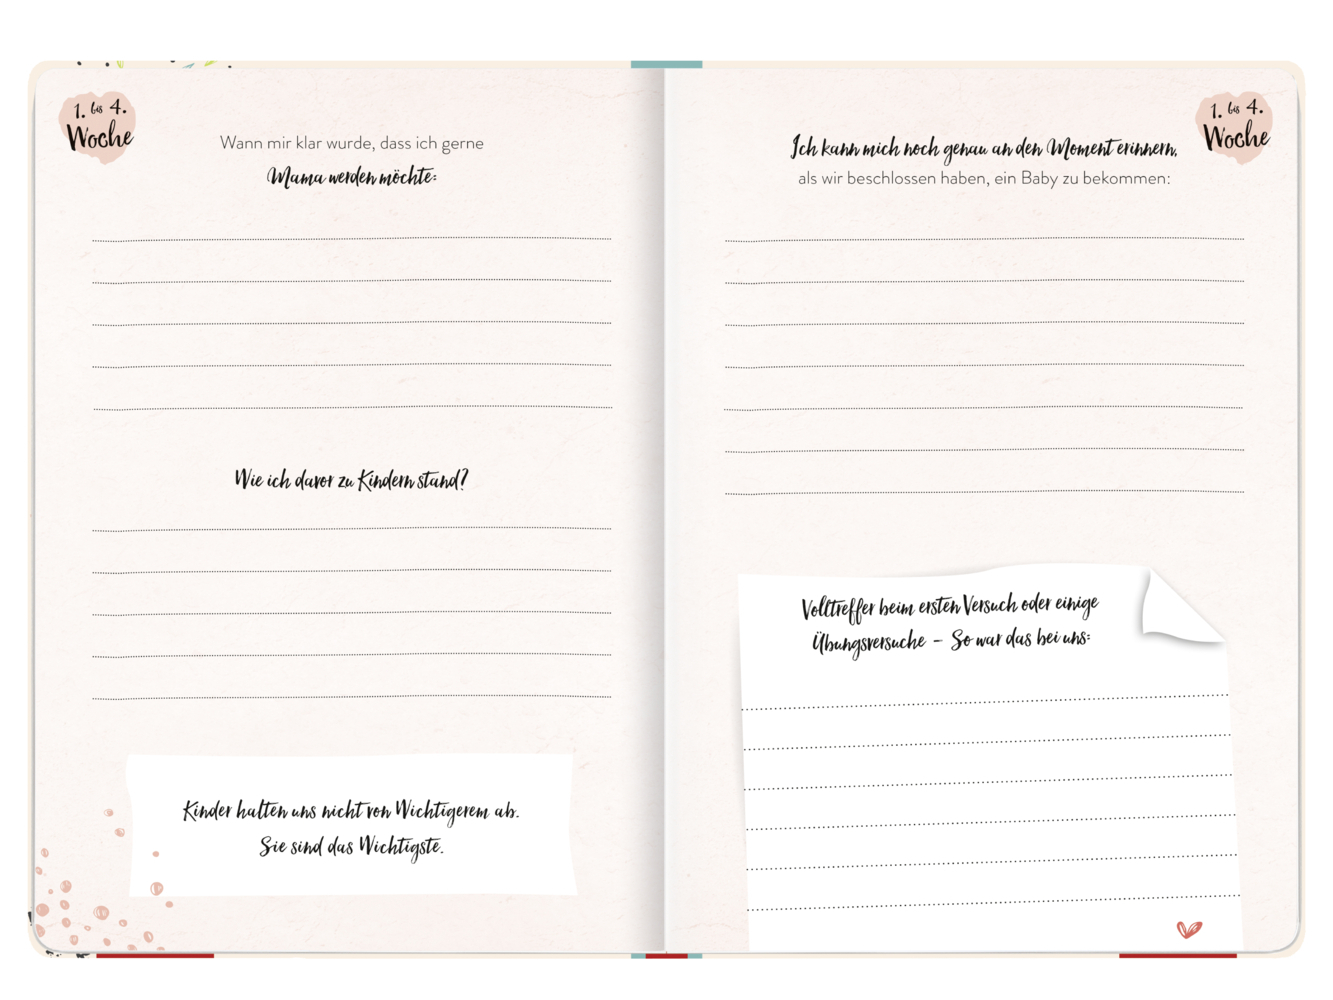 1. bis 4.
Woche
Wann mir klar wurde, dass ich gerne
Mama werden möchte:
Wie ich davor zu Kindern stand?
Kinder halten uns nicht von Wichtigerem ab.
Sie sind das Wichtigste.
1. bis 4.
Woche
Ich kann mich noch genau an den Moment erinnern,
als wir beschlossen haben, ein Baby zu bekommen:
Volltreffer beim ersten Versuch oder einige
Übungsversuche – So war das bei uns: